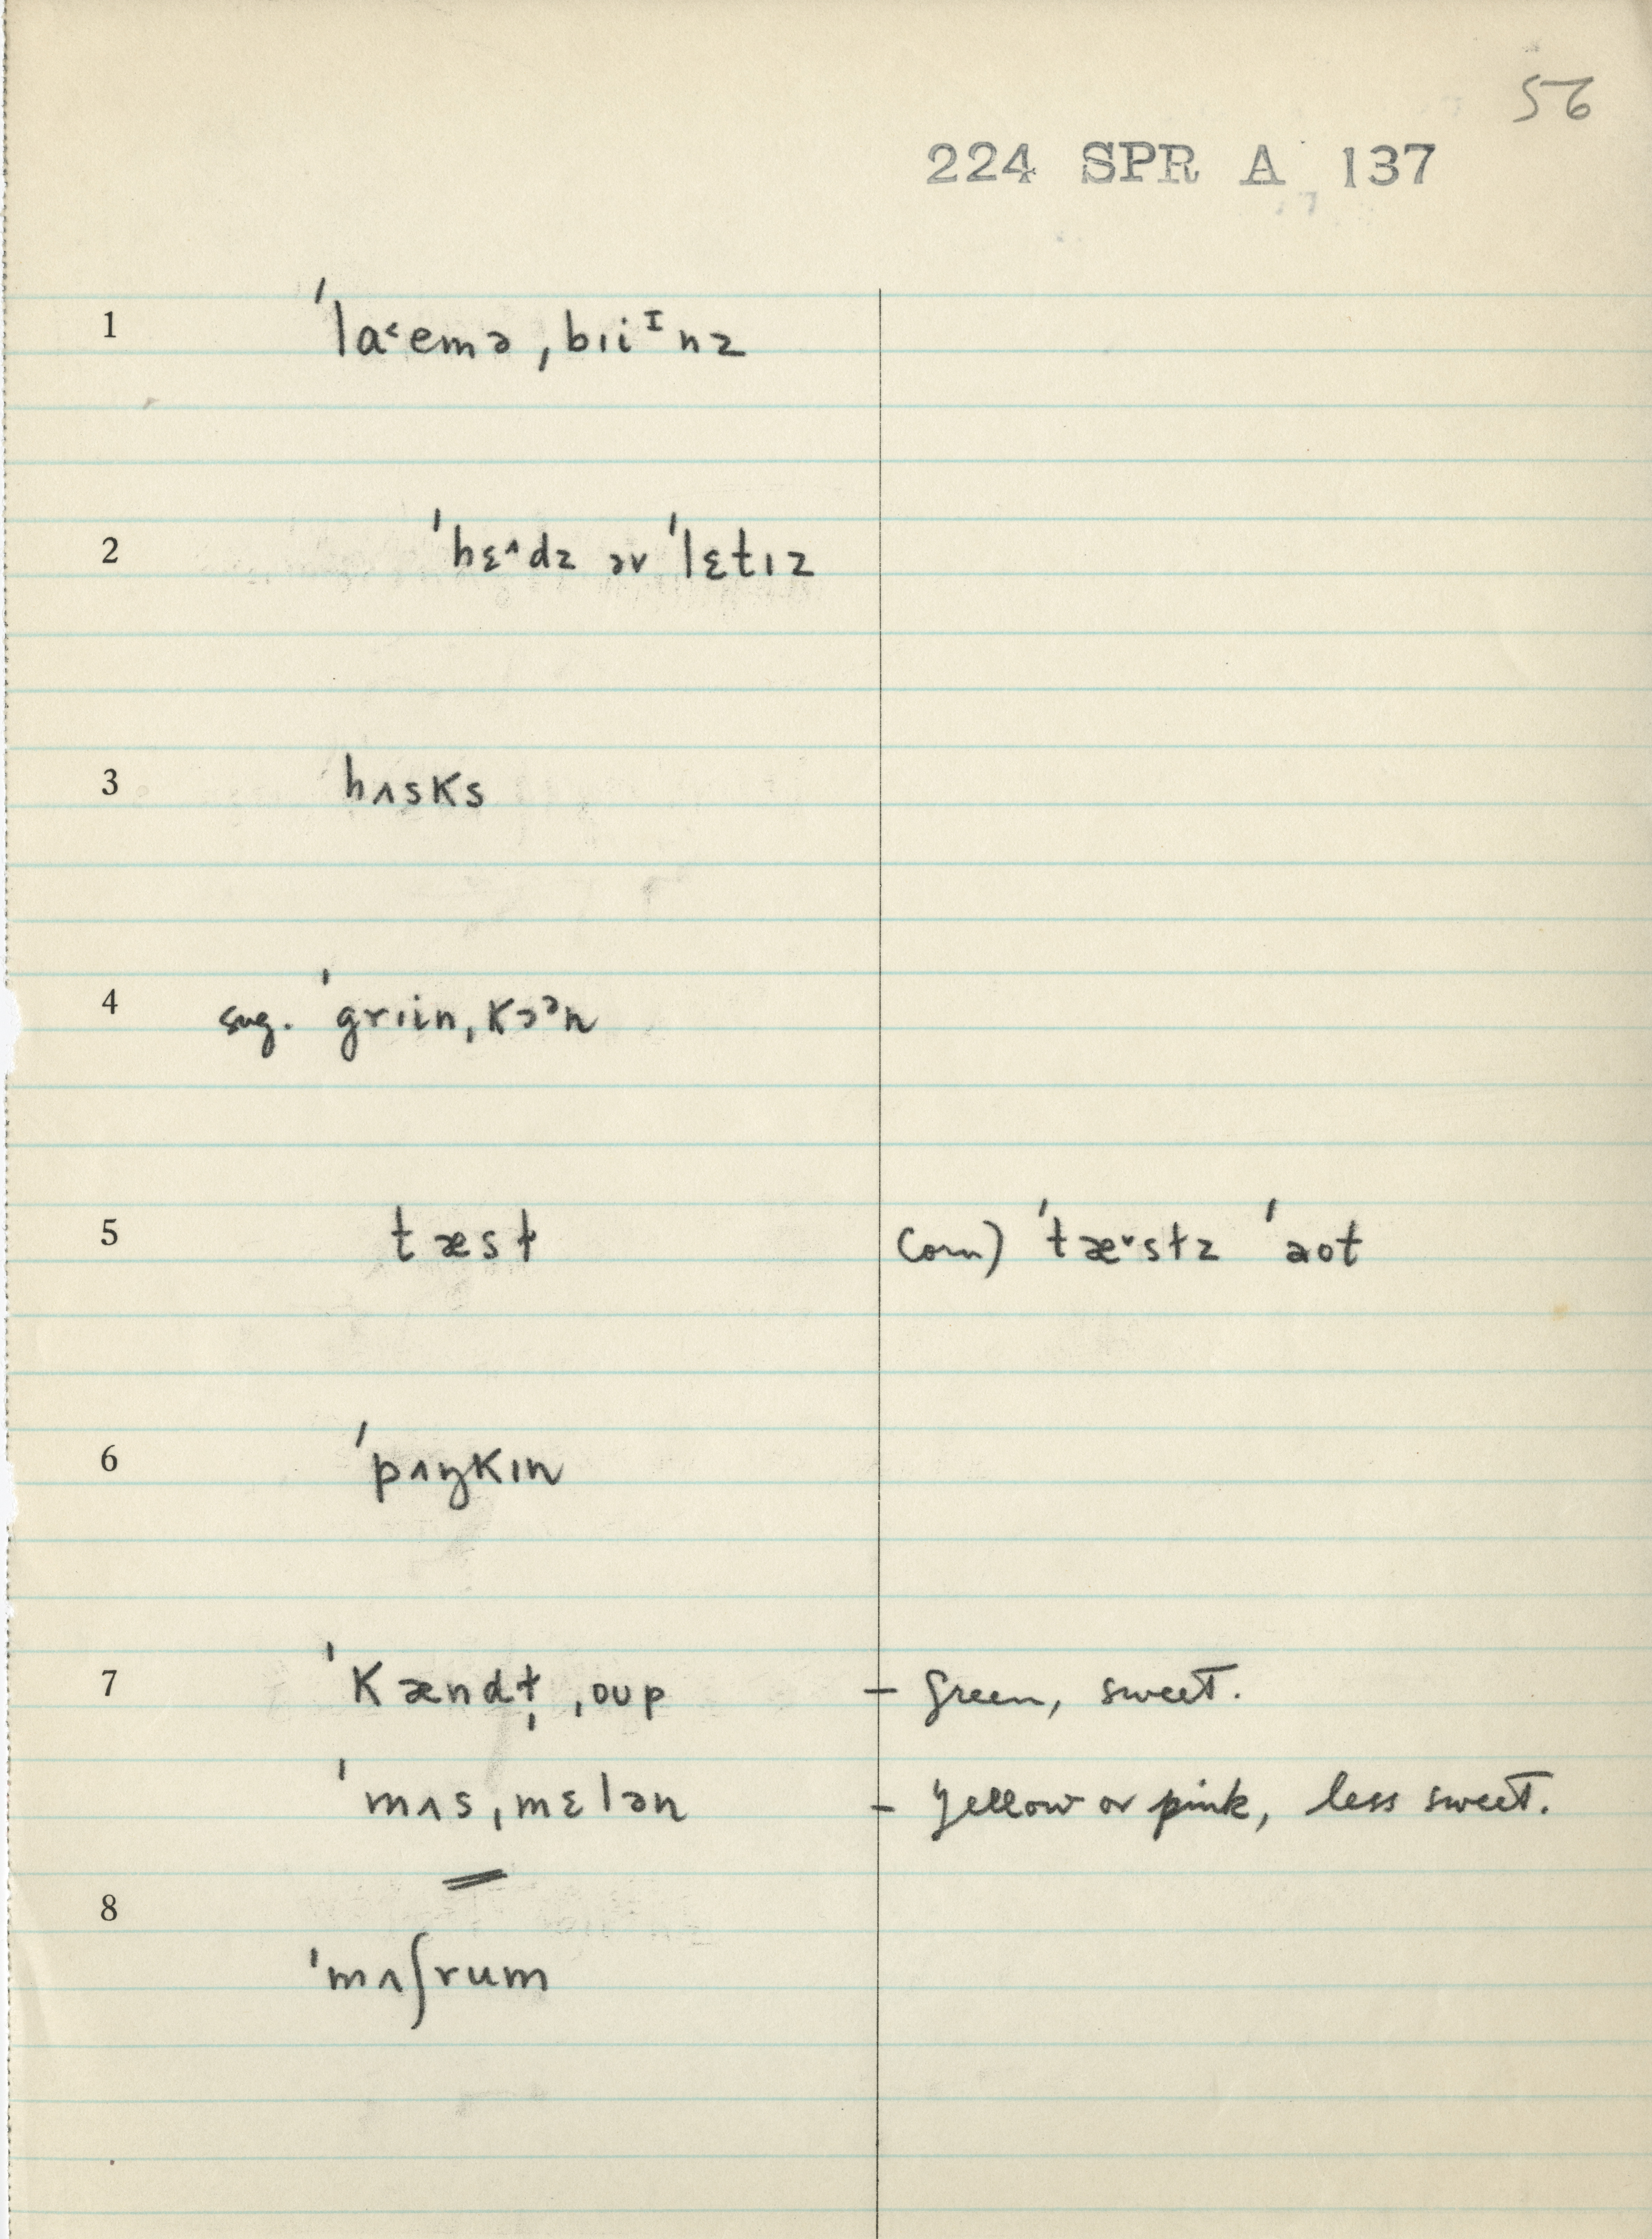 56
224 SPR A 137
1 ˈlaˑ˂emə ˌbɪiᴵnz
2 ˈhɛ˄dz əv ˈlɛtɪz
3 hʌsks
4 sug. ˈgrɪin ˌkɔᵊn
5 tæst Corn) ˈtæ˅stz ˈaot
6 ˈpʌŋkɪn
7 ˈkændt̩ ˌoup - Green, sweet.
ˈmʌs ˌmɛlən - Yellow or pink, less sweet.
8
ˈmʌʃrum